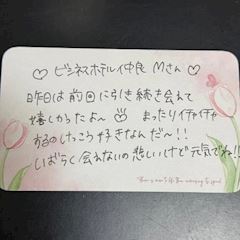 ♡ビジネスホテル仲良 Mさん♡
昨日は前回に引き続き会えて
嬉しかったよ〜 まったりイチャイチャ
するのけっこう好きなんだ〜!!
しばらく会えないの悲しいけど元気でね!!